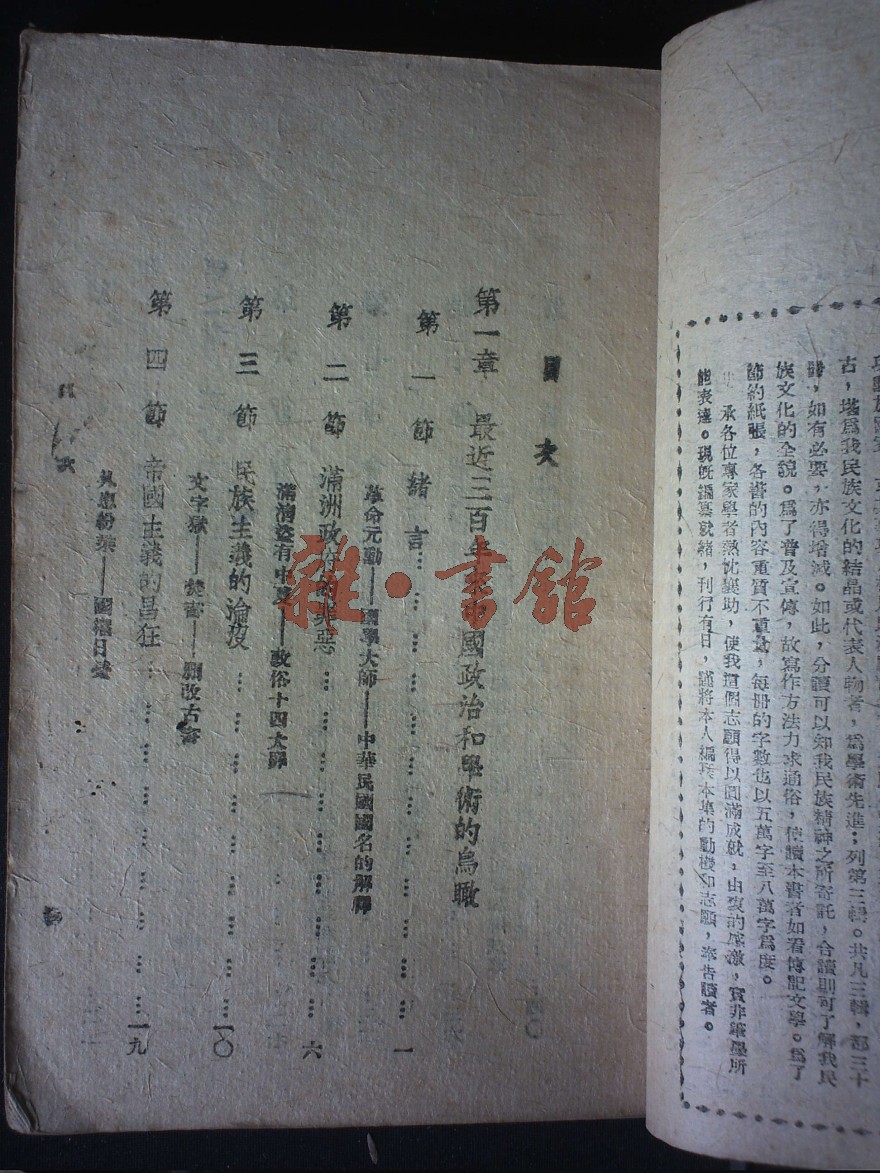 古,堪爲我民族文化的結晶或代表人物者,爲學術先進;列第三輯。共凡三輯,都三十
,如有必要,亦得增減。如此,分讀可以知我民族精神之所寄託,合讀則可了解我民
族文化的全貌。爲了普及宣傳,故寫作方法力求通俗,使讀本書者如看傳記文學。爲了
節約紙張,各書的內容重質不重量,每冊的字數也以五萬字至八萬字爲度。
承各位專家學者熱忱襄助,使我這個志願得以圓滿成就,由衷的感激,實非筆墨所
能表達。現旣編纂就緒,刊行有日,謹將本人編本集的動機和志願,奉告讀者。
目次
第一章 最近三百年來中國政治和學術的鳥瞰
第一節 緒言……………………一
革命元勳——國學大師——中華民國國名的解釋
第二節 滿洲政府的罪惡……………………六
滿淸盜有中夏——敗俗十四大罪
第三節 民族主義的淪沒……………………一〇
文字獄——焚書——刪改古書
第四節 帝國主義的昌狂……………………一九
——國
目次
雜·書館